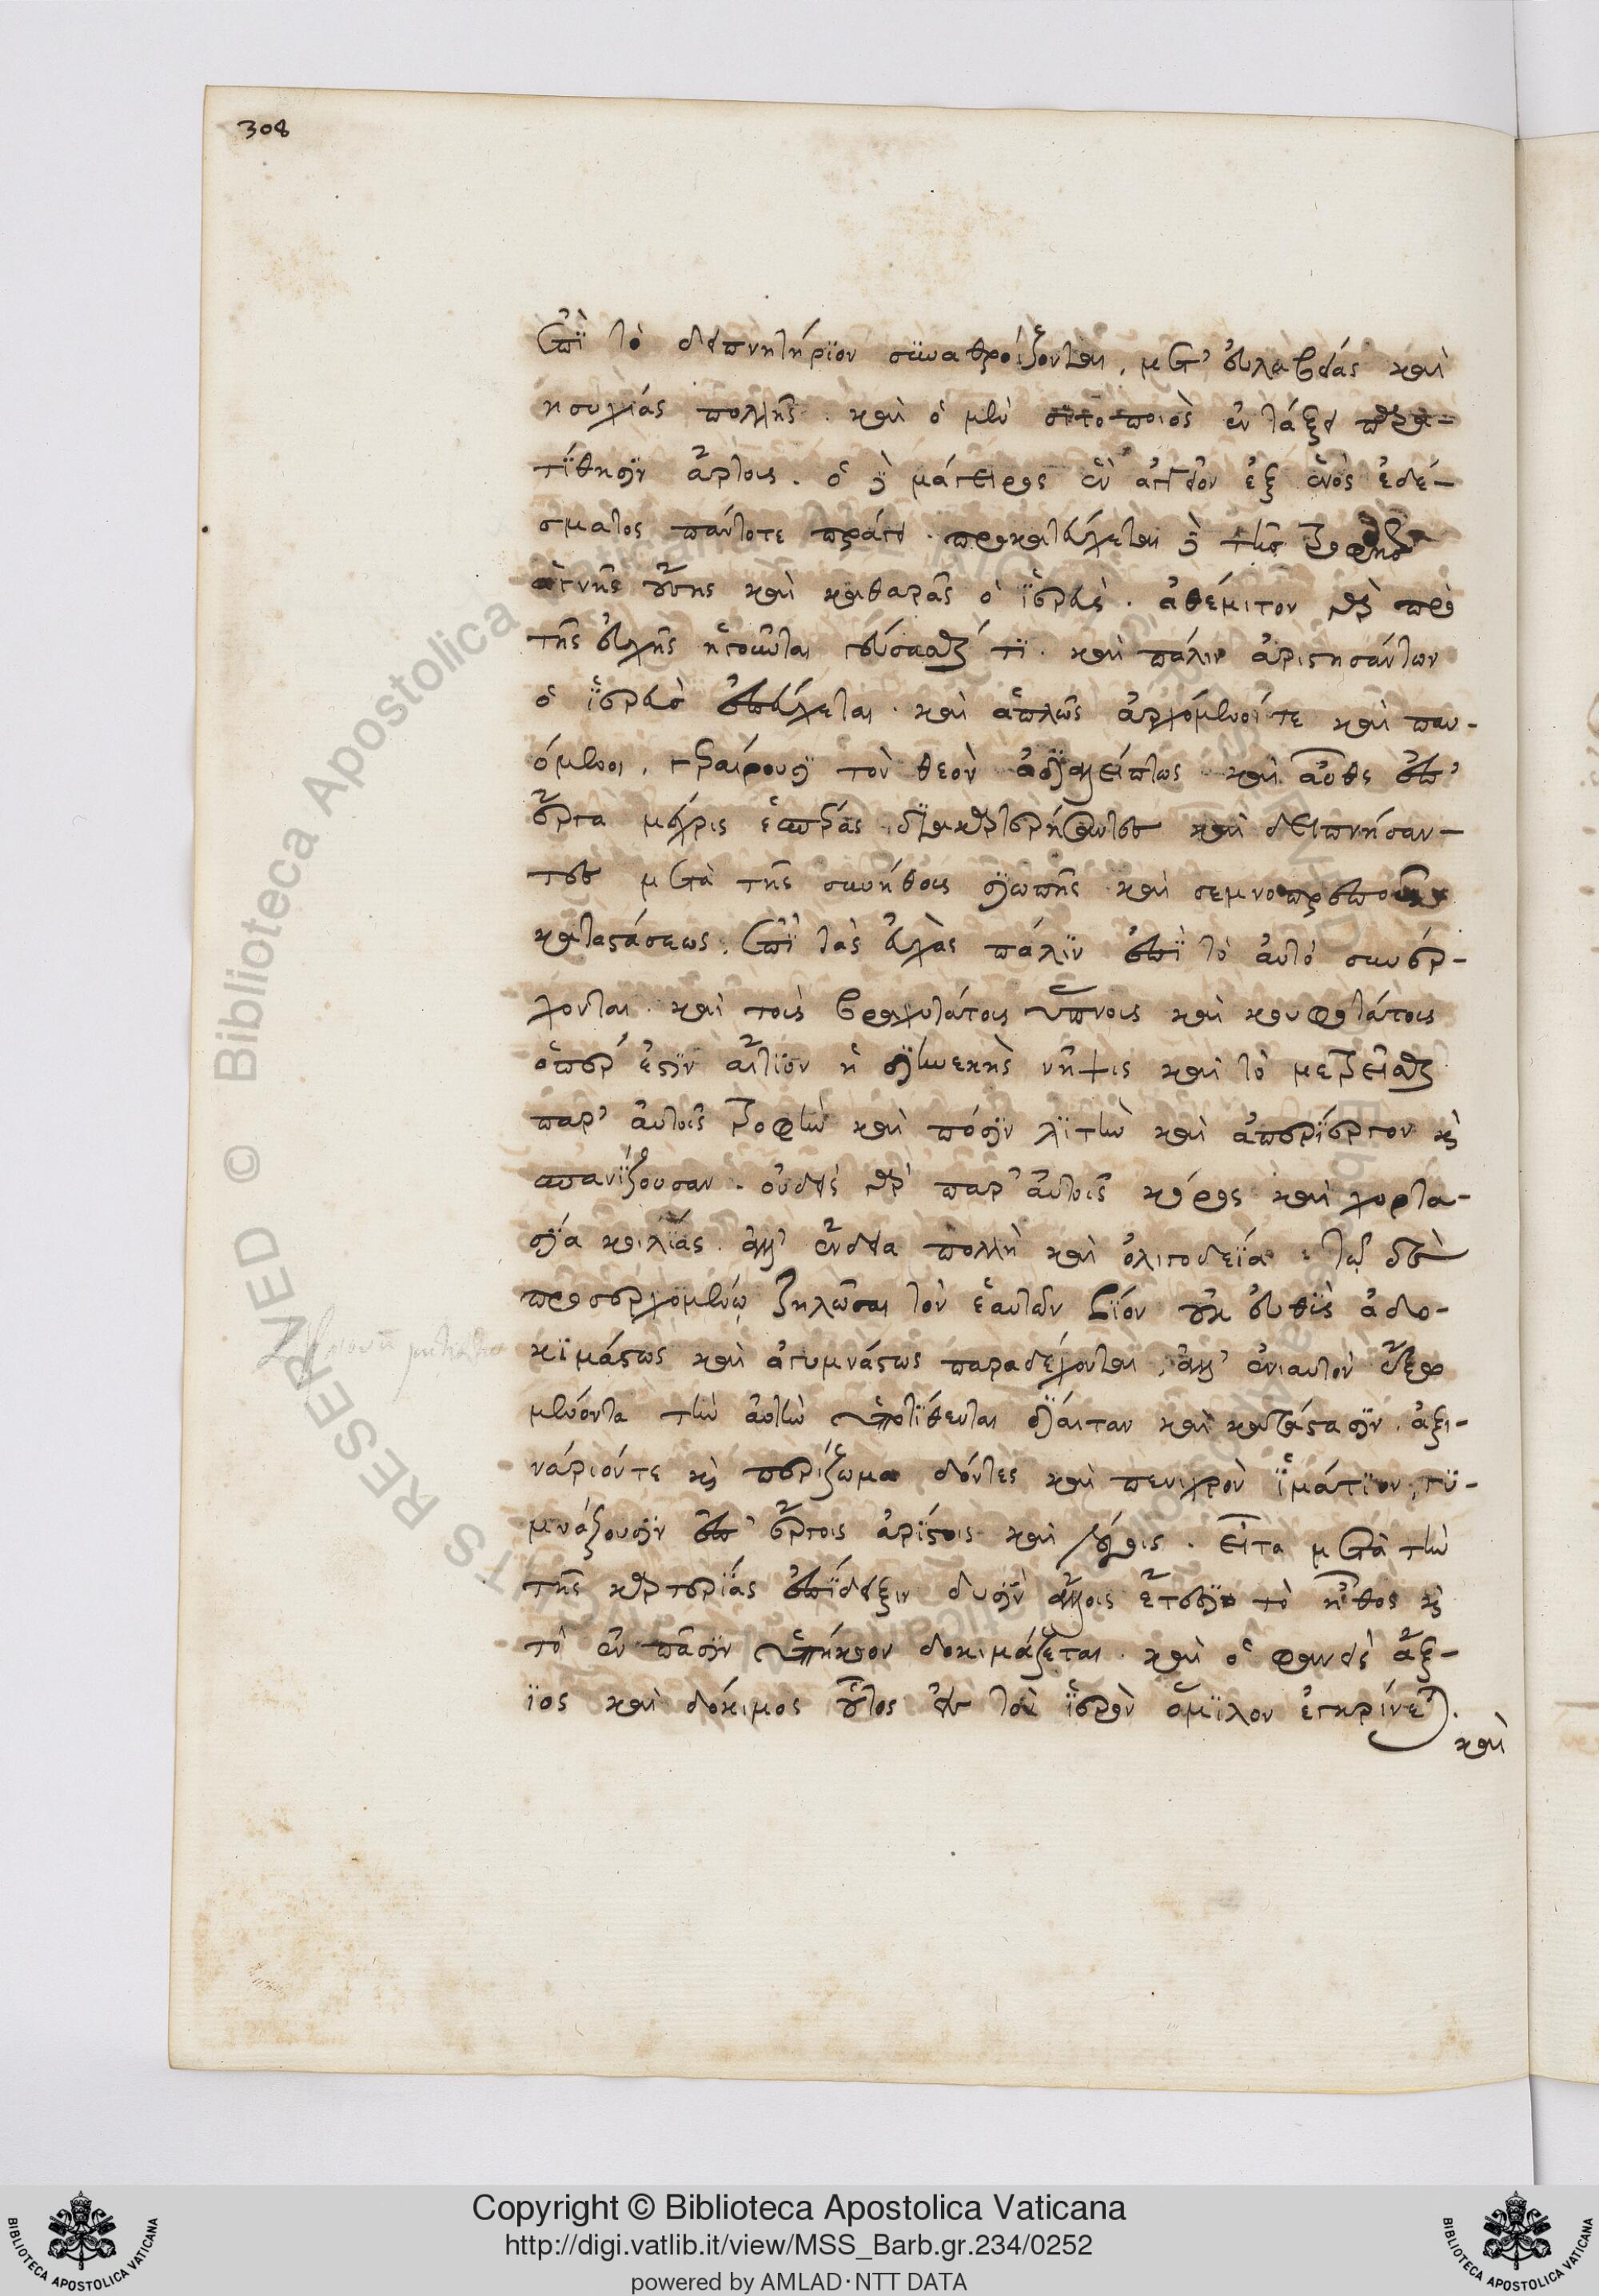 308
ἐπῒ τὸ δειπνητήρϊον συναθροίζονται, μετ' εὐλαβείας καὶ
ησυχίας πολλῆς. καὶ ὁ μὲν σιτοποιὸς ἐν τάξει παρα-
τίθησϊν ἄρτους. ὁ δὲ μάγειρος ἓν ἀγγεῖον ἐξ ἑνὸς ἐδέ-
σματος πάντοτε πράττει. προκατεύχεται δὲ τῆς τροφῆς
ἁγνῆς οὔσης καὶ καθαρᾶς ὁ ἱερεὺς. ἀθέμιτον γὰρ πρὸ
τῆς εὐχῆς ἡγοῦνται γεύσασθαί τι. καὶ πάλιν ἀριστησάντων
ὁ ἱερεὺς ἐπεύχεται. καὶ ἁπλῶς ἀρχόμενοί τε καὶ παυ-
όμενοι, γεραίρουσϊ τὸν θεὸν ἀδιαλείπτως. καὶ αὖθις ἐπ'
ἔργα μέχρις ἑσπέρας διακαρτερήσαντες καὶ δειπνήσαν-
τες μετὰ τῆς συνήθους σιωπῆς καὶ σεμνοπρεποῦς
καταστάσεως. ἐπῒ τὰς εὐχὰς πάλϊν ἐπῒ τὸ αὐτὸ συνέρ-
χονται. καὶ τοῖς βραχυτάτοις ὕπνοις καὶ κουφοτάτοις
ὅπερ ἐστὶν αἴτϊον ἡ διηνεκὴς νῆψις καὶ τὸ μετρεῖσθαι
παρ' αὐτοῖς τροφὴν καὶ πόσϊν λϊτὴν καὶ ἀπερίεργον καὶ
σπανίζουσαν. οὐδεὶς γὰρ παρ' αὐτοῖς κόρος καὶ χορτα-
σία κοιλίας. ἀλλ' ἔνδεια πολλὴ καὶ ὀλιγοδεΐα. τῷ δὲ
προσερχομένῳ ζηλῶσαι τὸν ἑαυτῶν βίον οὐκ εὐθὺς ἀδο-
κϊμάστως καὶ ἀγυμνάστως παραδέχονται, ἀλλ' ἐνιαυτὸν ἔξω
μένοντα τὴν αὐτὴν ὑποτίθενται δίαιταν καὶ κατάστασϊν. ἀξι-
νάριόν τε καὶ περίζωμα δόντες καὶ πενιχρὸν ἱμάτϊον, γϋ-
μνάζουσϊν ἐπ' ἔργοις ἀρίστοις καὶ λόγοις. εἶτα μετὰ τὴν
τῆς καρτερίας ἐπίδειξιν δυσὶν ἄλλοις ἔτεσϊ τὸ ἦθος καὶ
τὸ ἐν πᾶσϊν ὑπήκοον δοκιμάζεται. καὶ ὁ φανεὶς ἄξ-
ϊος καὶ δόκιμος οὗτος εἰς τὸν ἱερὸν ὅμϊλον ἐγκρίνεται.
καὶ
Copyright © Biblioteca Apostolica Vaticana
http://digi.vatlib.it/view/MSS_Barb.gr.234/0252
powered by AMLAD·NTT DATA